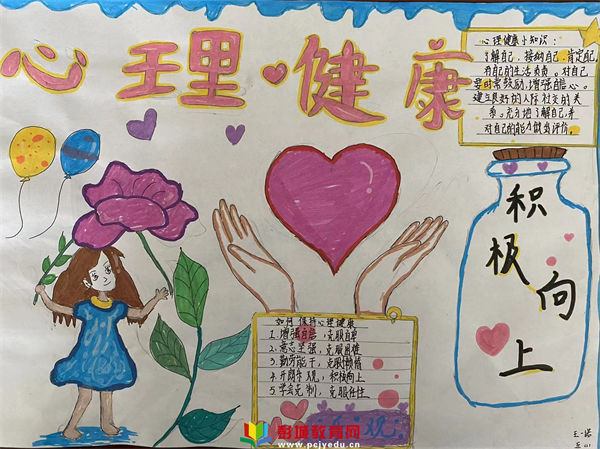 心理健康
心理健康小知识：
了解自己，接纳自己，肯定配
有自己的生活负责。对自己
要时常鼓励，增强自信心。
建立良好的人际社交的关
系。充分地了解自己，并
对自己的能力做出评价。
积极向上
如何保持心理健康
1.增强自信，克服自卑
2.意志坚强，克服困难
3.勤劳能干，克服懒惰
4.开朗乐观，积极向上
5.学会克制，克服任性
乐观
彭城教育网
www.pcjyedu.cn